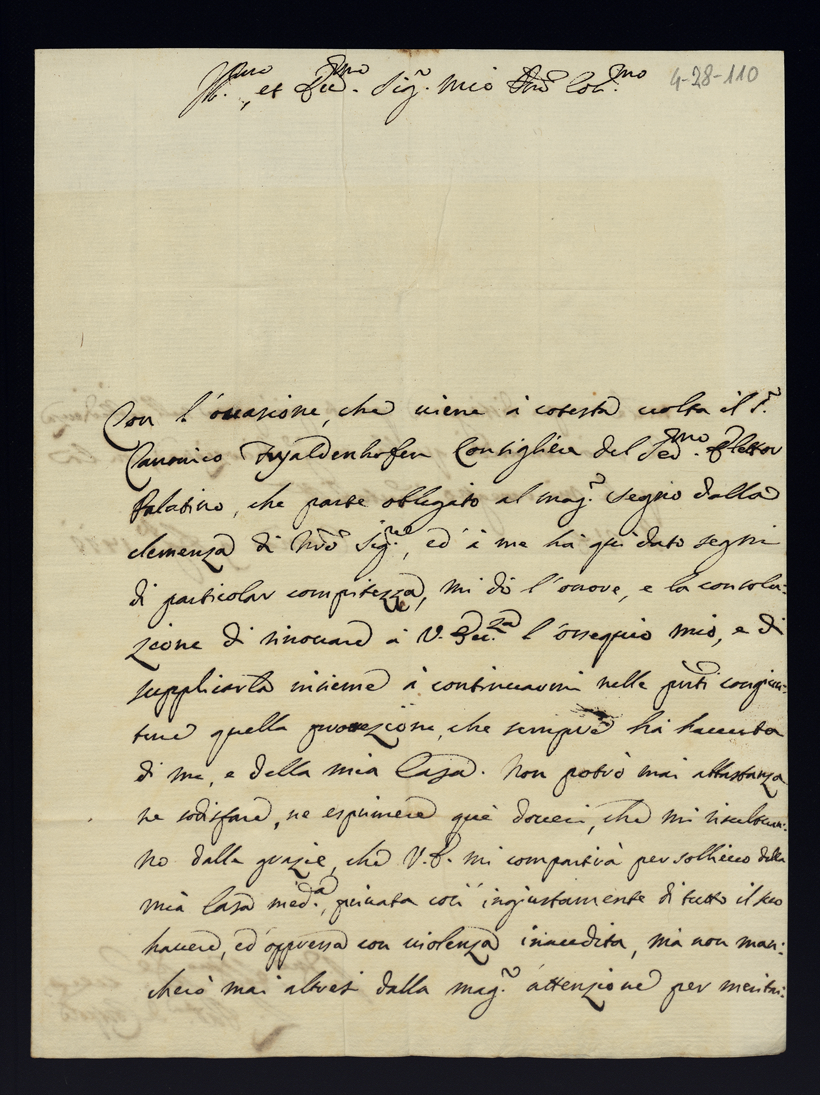 Ill.mo, et Ecc.mo Sig.r mio P.rone Col.mo 4-28-110
Con l'occasione, che viene à cotesta volta il S.r
Canonico Waldenhofen Consigliere del Ser.mo Elettor
Palatino, che parte obbligato al mag.r segno dalla
clemenza di N.ro Sig.re, ed à me hà quì dato segni
di particolar compitezza, mi dò l'onore, e la consola:
zione di rinovare à V. Ecc.za l'ossequio mio, e di
supplicarla insieme à continuarmi nelle pnti congiun:
ture quella protezione, che sempre hà havuta
di me, e della mia Casa. Non potrò mai abbastanza
ne sodisfare, ne esprimere què doveri, che mi risultaran:
no dalle grazie, che V. E. mi compartirà per sollievo della
mia Casa med.a, privata così ingiustamente di tutto il suo
havere, ed oppressa con violenza inaudita, mà non man:
cherò mai altresì dalla mag.r attenzione per meritar: